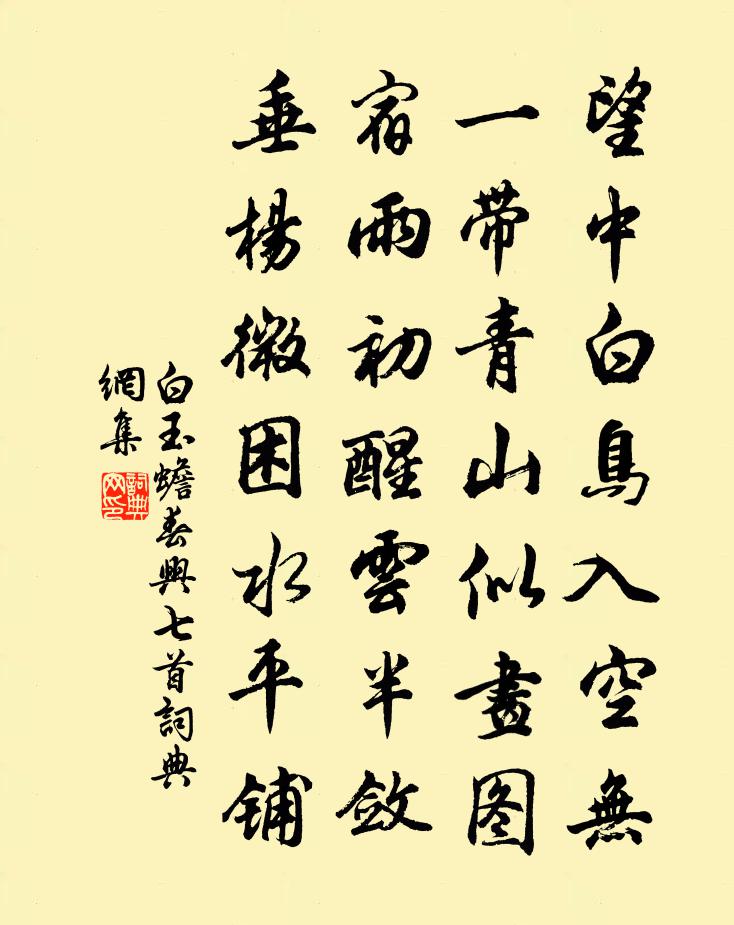 望中白鳥入空無
一带青山似畫图
宿雨初醒雲半斂
垂楊微困水平铺
白玉蟾春興七首詞典
網集
詞典
网印